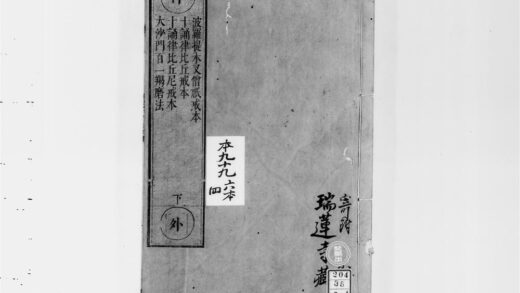 波羅提木叉僧祇戒本
十誦律比丘戒本
十誦律比丘尼戒本
大沙門百一羯磨法
下
外
本九十九 六本
四
瑞蓮寺藏
204